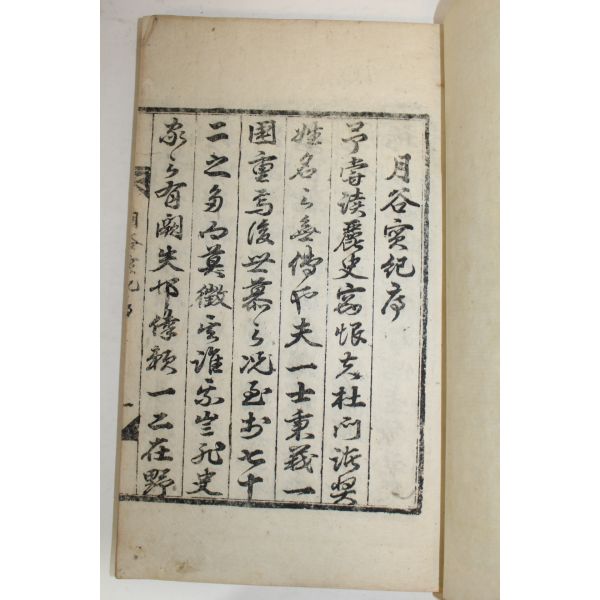 月谷實紀序
予嘗讀麗史窃恨其杜门諸賢
姓名之無傳也夫一士秉義一
国重焉後世慕之况至於七十
二之多而莫徵其誰某豈非史
家之有闕失耶仅賴一二在野
月谷實紀序
一